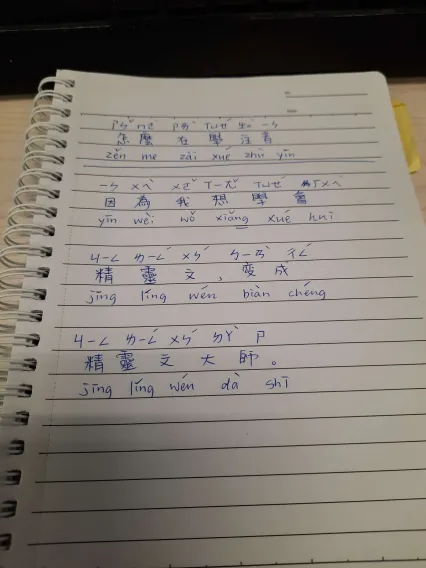 ㄗㄣˇ ㄇㄜ˙ ㄗㄞˋ ㄒㄩㄝˊ ㄓㄨˋ ㄧㄣ
怎麼在學注音
zěn me zài xué zhù yīn
ㄧㄣ ㄨㄟˋ ㄨㄛˇ ㄒㄧㄤˇ ㄒㄩㄝˊ ㄏㄨㄟˋ
因為我想學會
yīn wèi wǒ xiǎng xué huì
ㄐㄧㄥ ㄌㄧㄥˊ ㄨㄣˊ ㄅㄧㄢˋ ㄔㄥˊ
精靈文,变成
jīng líng wén biàn chéng
ㄐㄧㄥ ㄌㄧㄥˊ ㄨㄣˊ ㄉㄚˋ ㄕ
精靈文大師。
jīng líng wén dà shī